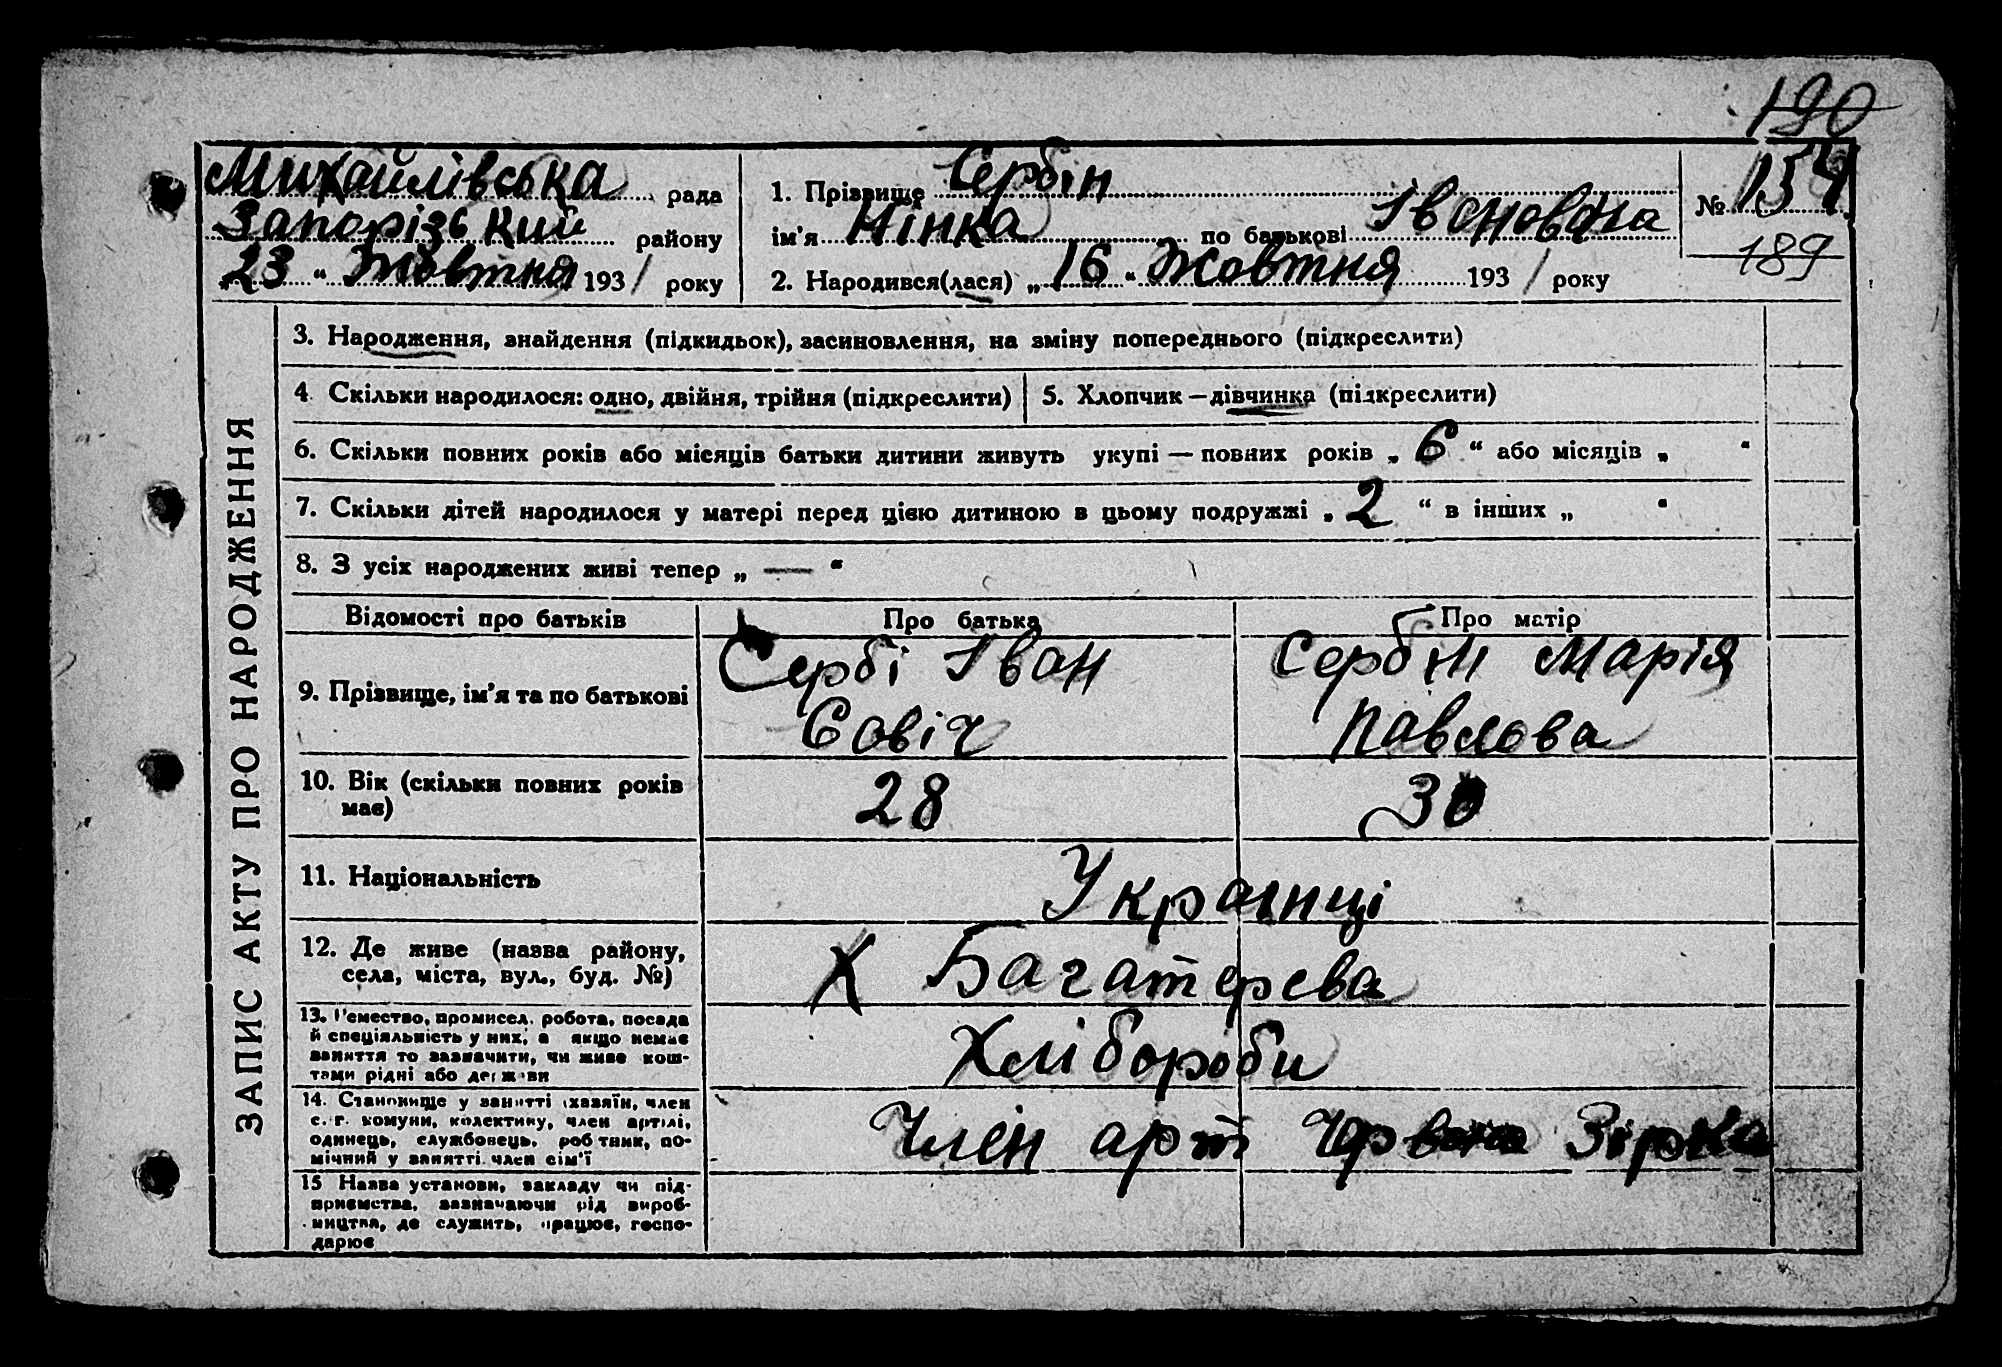 190
Михайлівська рада
Запорізький району
23 " Жовтня 1931 року
1. Прізвище Сербін
ім'я Нінка по батькові Івоновона
2. Народився(лася) „ 16 " Жовтня 1931 року
№ 154
189
ЗАПИС АКТУ ПРО НАРОДЖЕННЯ
3. Народження, знайдення (підкидьок), засиновлення, на зміну попереднього (підкреслити)
4. Скільки народилося: одно, двійня, трійня (підкреслити)
5. Хлопчик — дівчинка (підкреслити)
6. Скільки повних років або місяців батьки дитини живуть укупі — повних років „ 6 " або місяців „ "
7. Скільки дітей народилося у матері перед цією дитиною в цьому подружжі „ 2 " в інших „ "
8. З усіх народжених живі тепер „ — "
Відомості про батьків Про батька Про матір
9. Прізвище, ім'я та по батькові
Сербі Іван
Савіч
Сербін Марія
Павлова
10. Вік (скільки повних років
має)
28
30
11. Національність
Українці
12. Де живе (назва району,
села, міста, вул., буд. №)
Х Багатерева
13. Ремество, промисел, робота, посада
й спеціяльність у них, а якщо немає
заняття то зазначити, чи живе кош-
тами рідні або держави
Хлібороби
14. Становище у занятті (хазяїн, член
с.-г. комуни, колективу, член артілі,
одинець, службовець, робітник, по-
мічний у занятті член сім'ї
Члєн арт Чрвона Зірка
15 Назва установи, закладу чи під-
приємства, зазначаючи рід вироб-
ництва, де служить, працює, госпо-
дарює